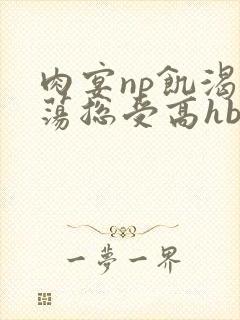 肉宴np飢渴
蕩总受高hb
一夢一界